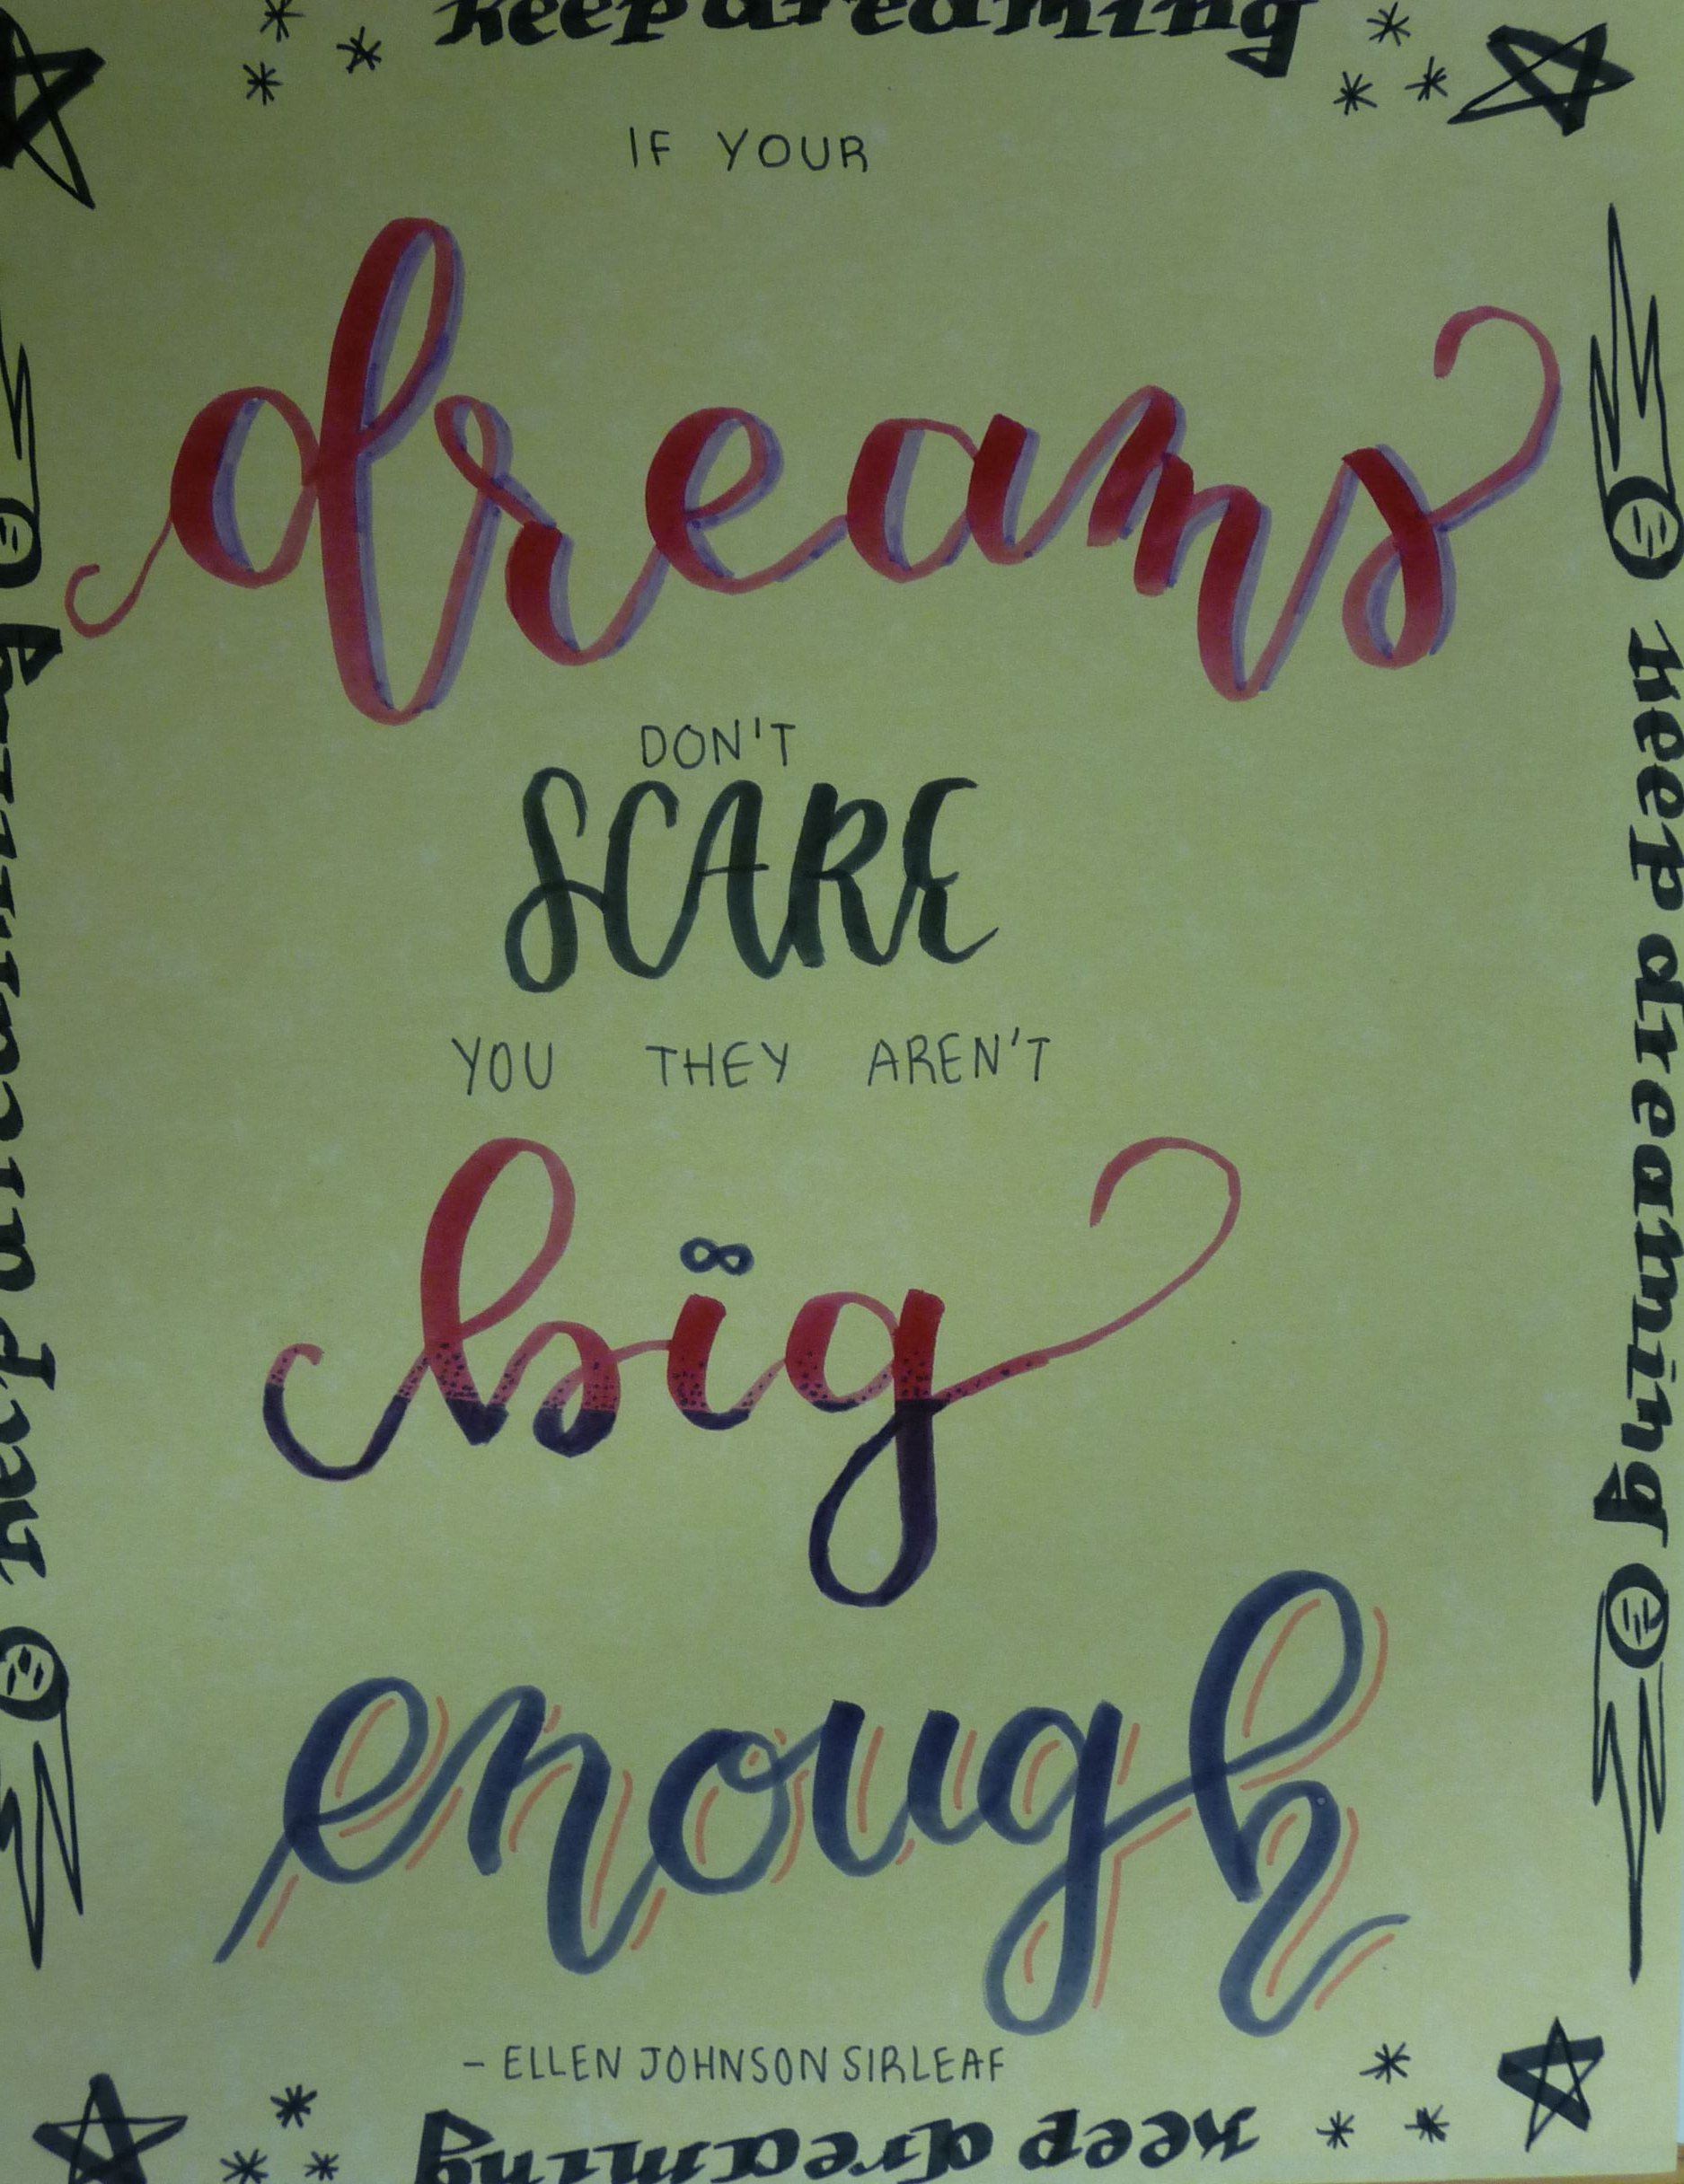 keep dreaming
IF YOUR
dreams
DON'T
SCARE
YOU THEY AREN'T
big
enough
- ELLEN JOHNSON SIRLEAF
keep dreaming
keep dreaming
keep dreaming